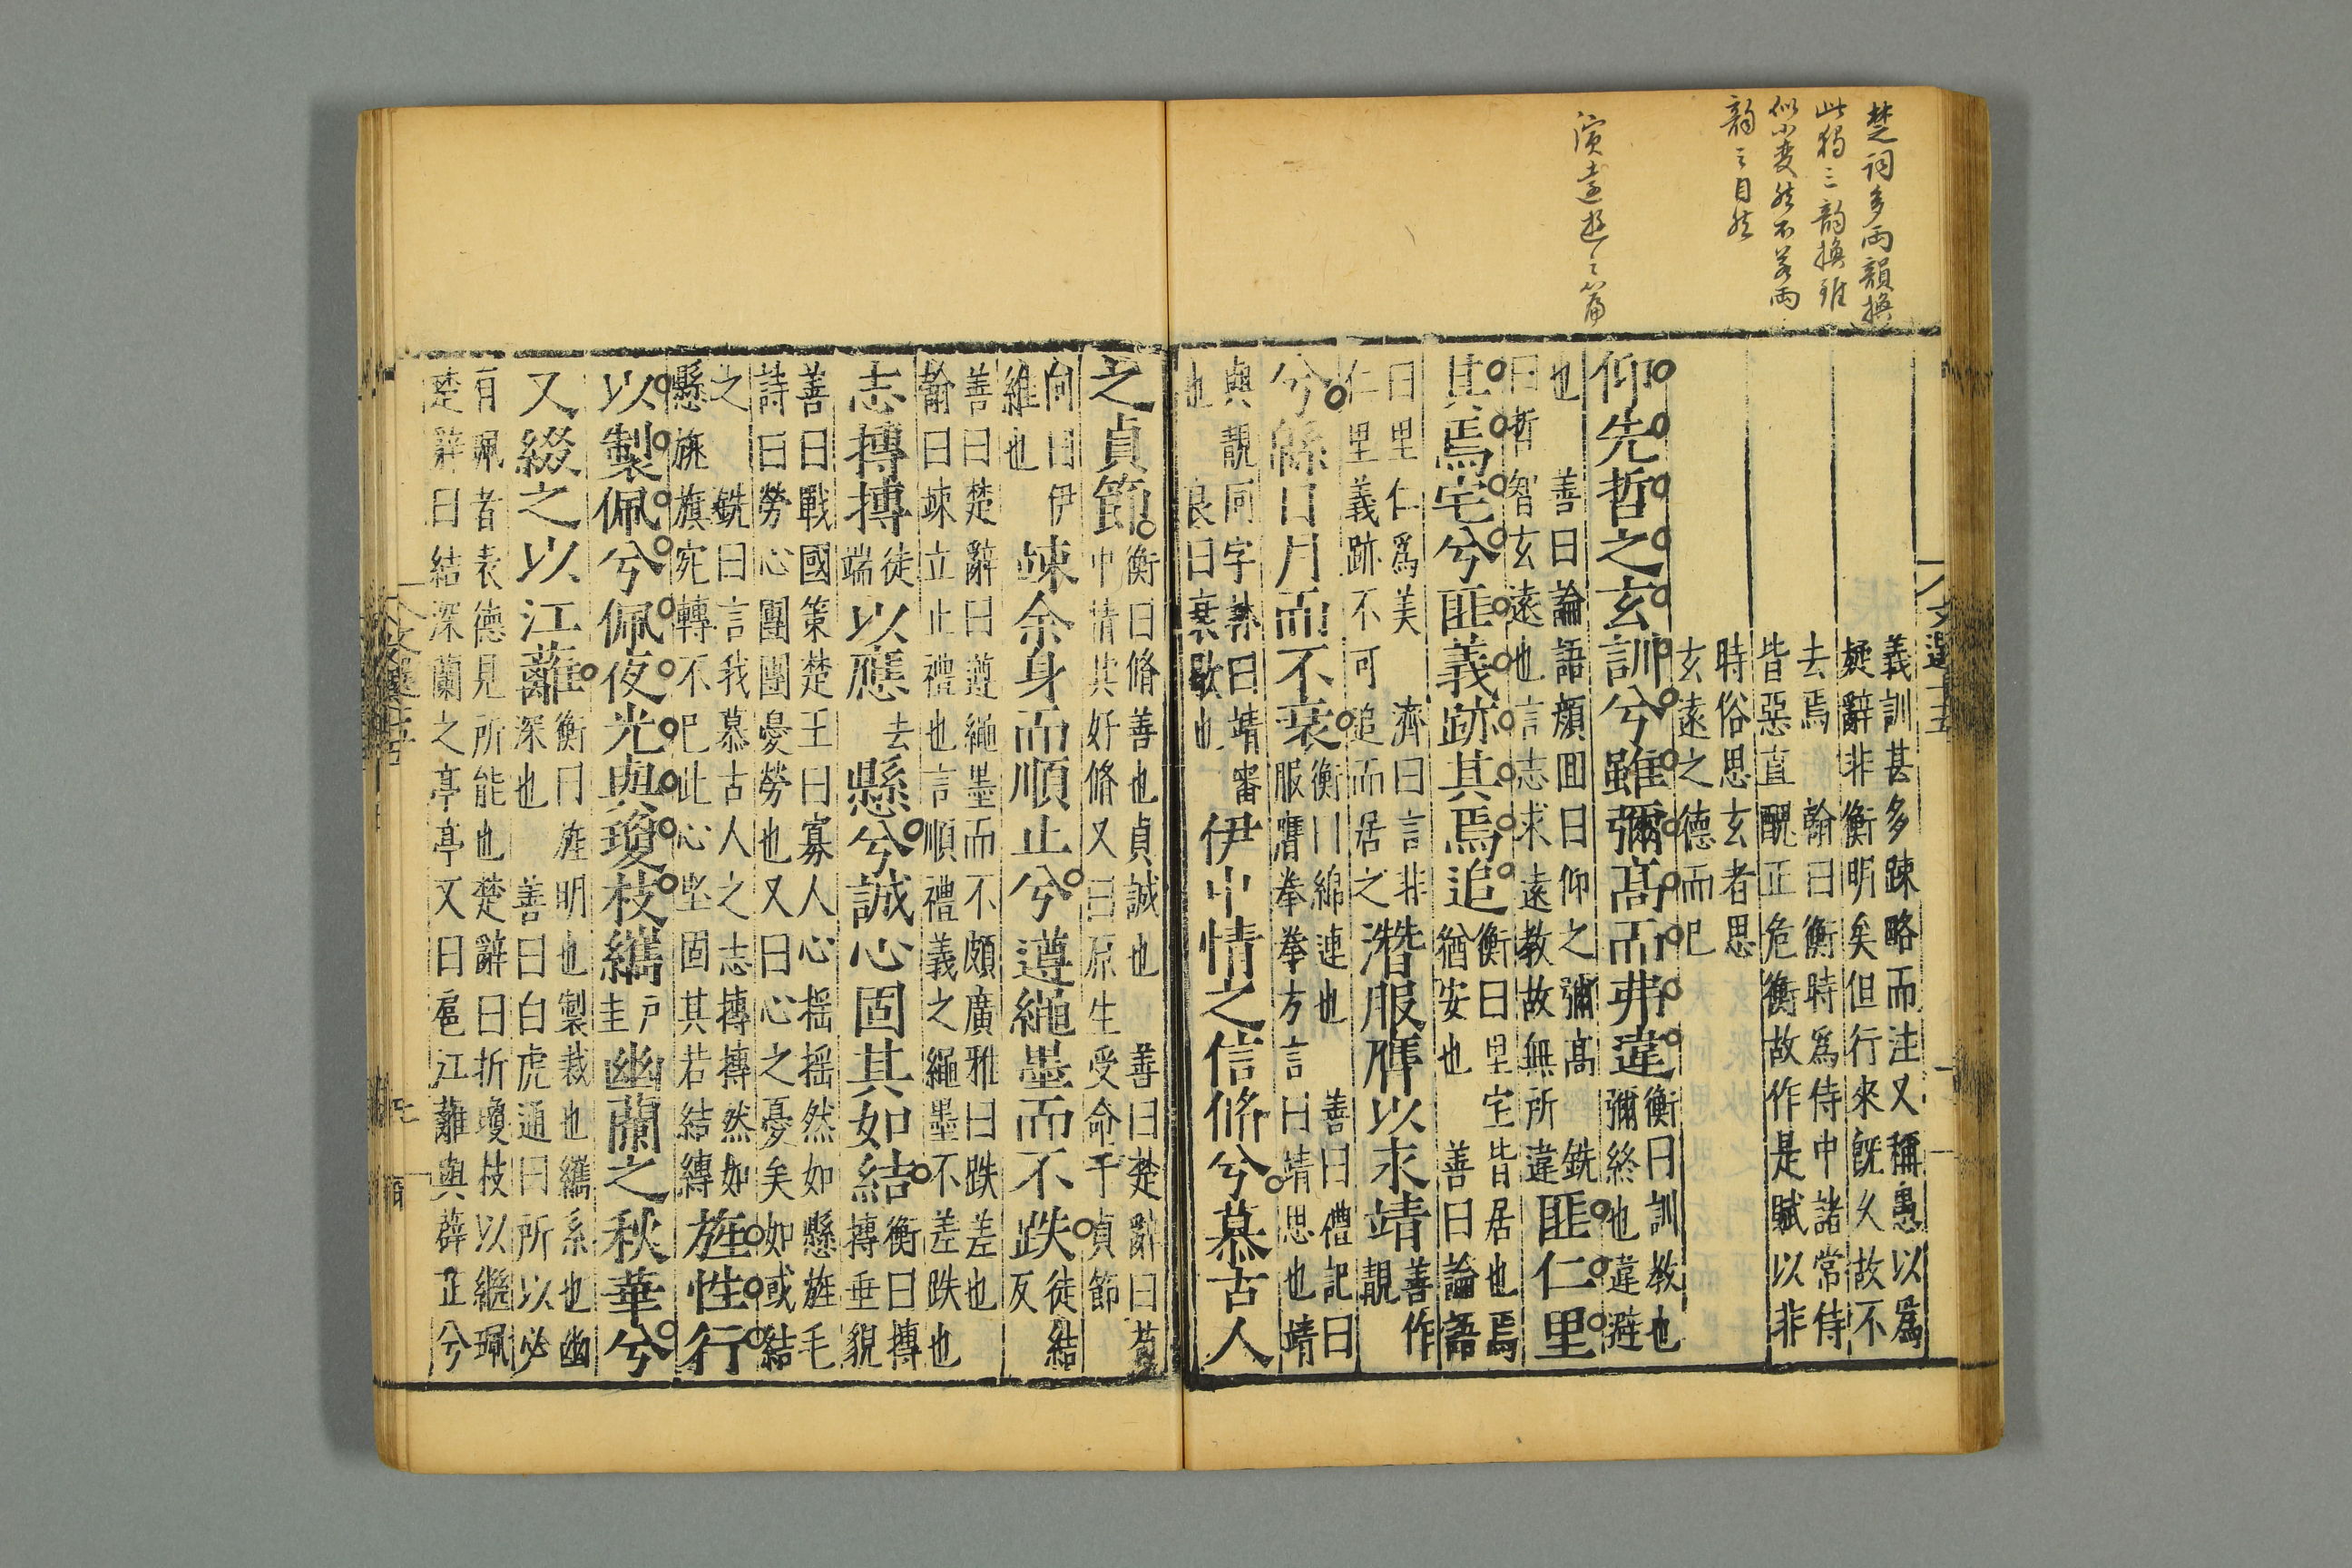 楚词多两韻換
此獨三韵換雖
似小变然不若两
韵之自然
演遠遊之篇
義訓甚多踈略而注又稱愚以爲
疑辭非衡明矣但行來旣久故不
去焉 翰曰衡時爲侍中諸常侍
皆惡直醜正危衡故作是賦以非
時俗思玄者思
玄遠之德而巳
仰先哲之玄訓兮雖彌高而弗違
衡曰訓教也
彌終也違避
也 善曰論語顏回曰仰之彌高 銑
曰哲智玄遠也言志求遠教故無所違
匪仁里
其焉宅兮匪義跡其焉追
衡曰里宅皆居也焉
猶安也 善曰論語
曰里仁爲美 濟曰言非
仁里義跡不可追而居之
潛服膺以永靖
善作
靚
兮緜日月而不衰
衡曰綿連也 善曰禮記曰
服膺拳拳方言曰靖思也靖
與靚同字林曰靖審
也 良曰衰歇也
伊中情之信脩兮慕古人
之貞節
衡曰脩善也貞誠也 善曰楚辭曰苟
中情其好脩又曰原生受命于貞節
向曰伊
維也
竦余身而順止兮遵繩墨而不跌
徒結
反
善曰楚辭曰遵繩墨而不頗廣雅曰跌差也
翰曰竦立止禮也言順禮義之繩墨不差跌也
志摶摶
徒
端
以應
去
懸兮誠心固其如結
衡曰摶
摶垂貌
善曰戰國策楚王曰寡人心揺揺然如懸旌毛
詩曰勞心團團憂勞也又曰心之憂矣如或結
之 銑曰言我慕古人之志摶摶然如
懸旐旗宛轉不巳此心堅固其若結縳
旌性行
以製佩兮佩夜光與瓊枝纗
戶
圭
幽蘭之秋華兮
又綴之以江蘺
衡曰旌明也製裁也纗系也幽
深也 善曰白虎通曰所以必
有珮者表德見所能也楚辭曰折瓊枝以繼珮
楚辭曰結深蘭之亭亭又曰扈江蘺與薜芷兮